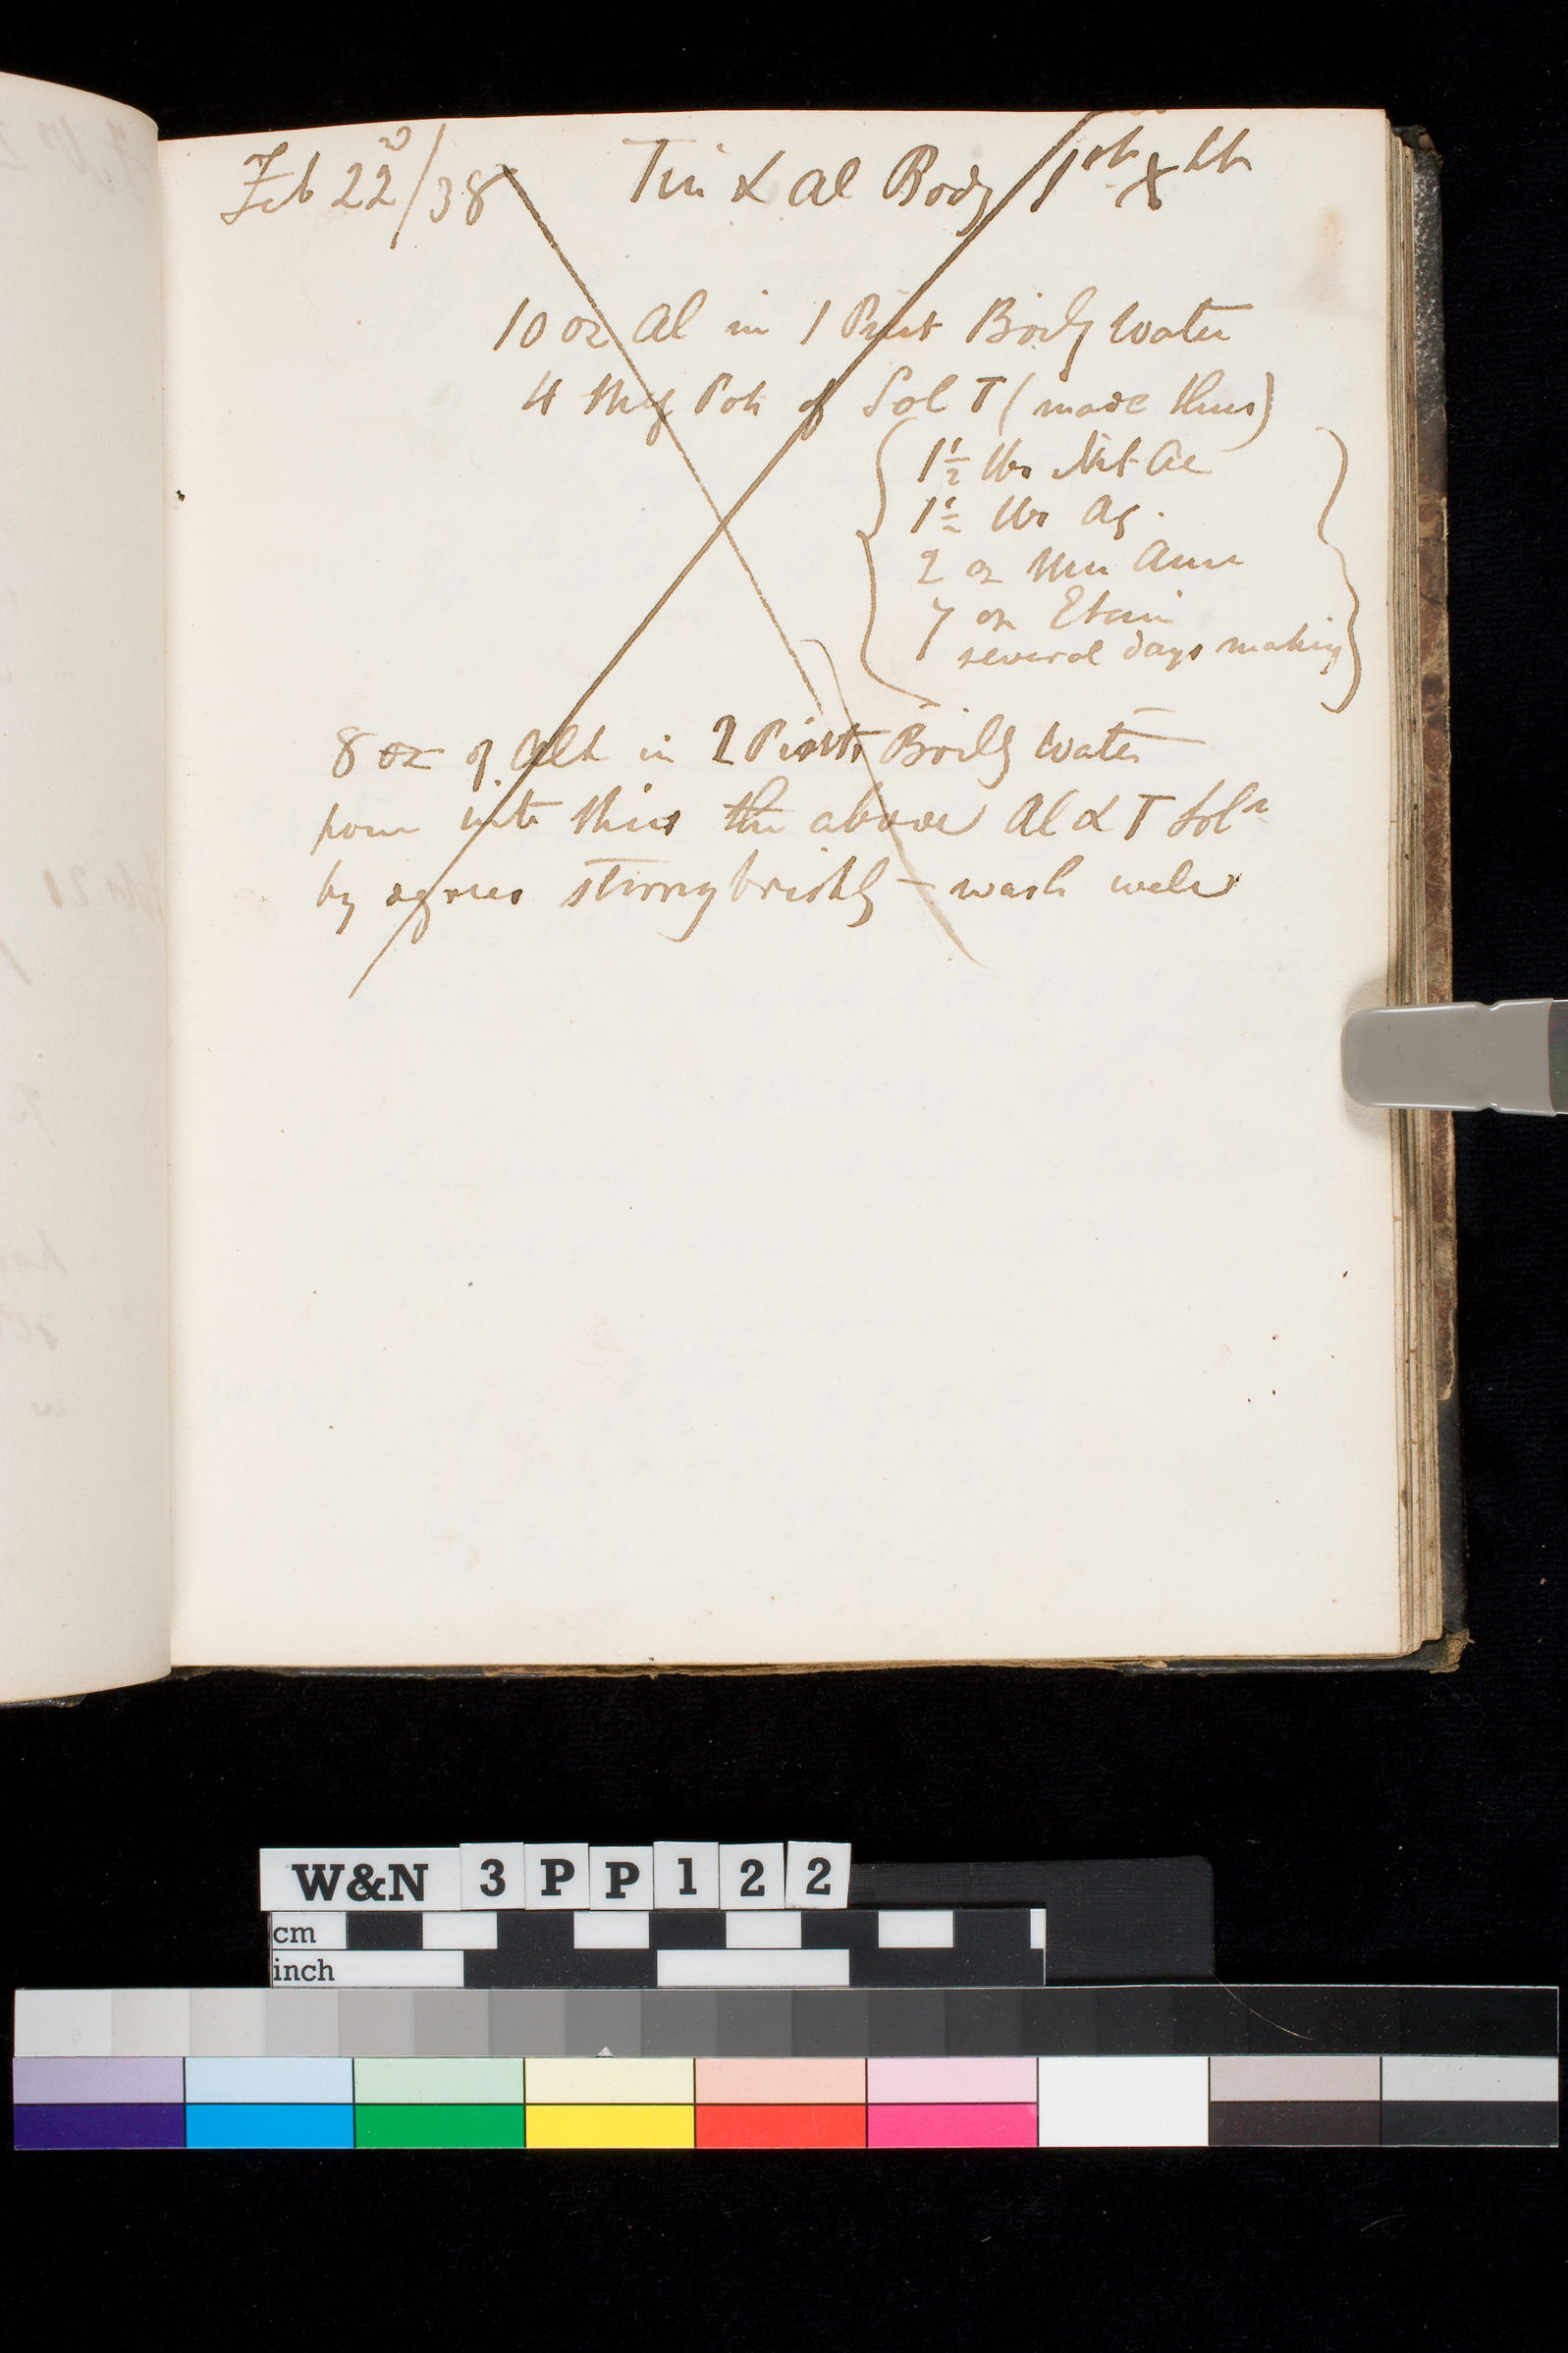 Feb 22d/38 Tin & Al Body 1st Xpt
10 oz Al in 1 Pint Boilg Water
4 Sol T (made thus)
1½ lbs Nit Ac
1½ lbs Aq.
2 oz Mu Amm
7 oz Etain
several days making
8 oz of Alk in 2 Pints Boilg Water
pour into this the above Al & T Soln
by degrees stirring briskly – wash well
W&N 3PP122
cm
inch